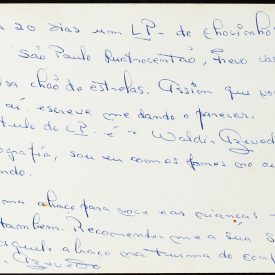 a 20 dias um LP - de chorinho
São Paulo Quatrocentão, trevo
isa chão de estrelas. Assim que
aí, escreve me dando o parecer.
tulo do LP. é " Waldir Azevedo
ografia, sou eu com os fones no ou
ndo.
ma abraço para você e as crianças
tambem. Recomendar me a sua S
abraço na turma de
. Azevedo